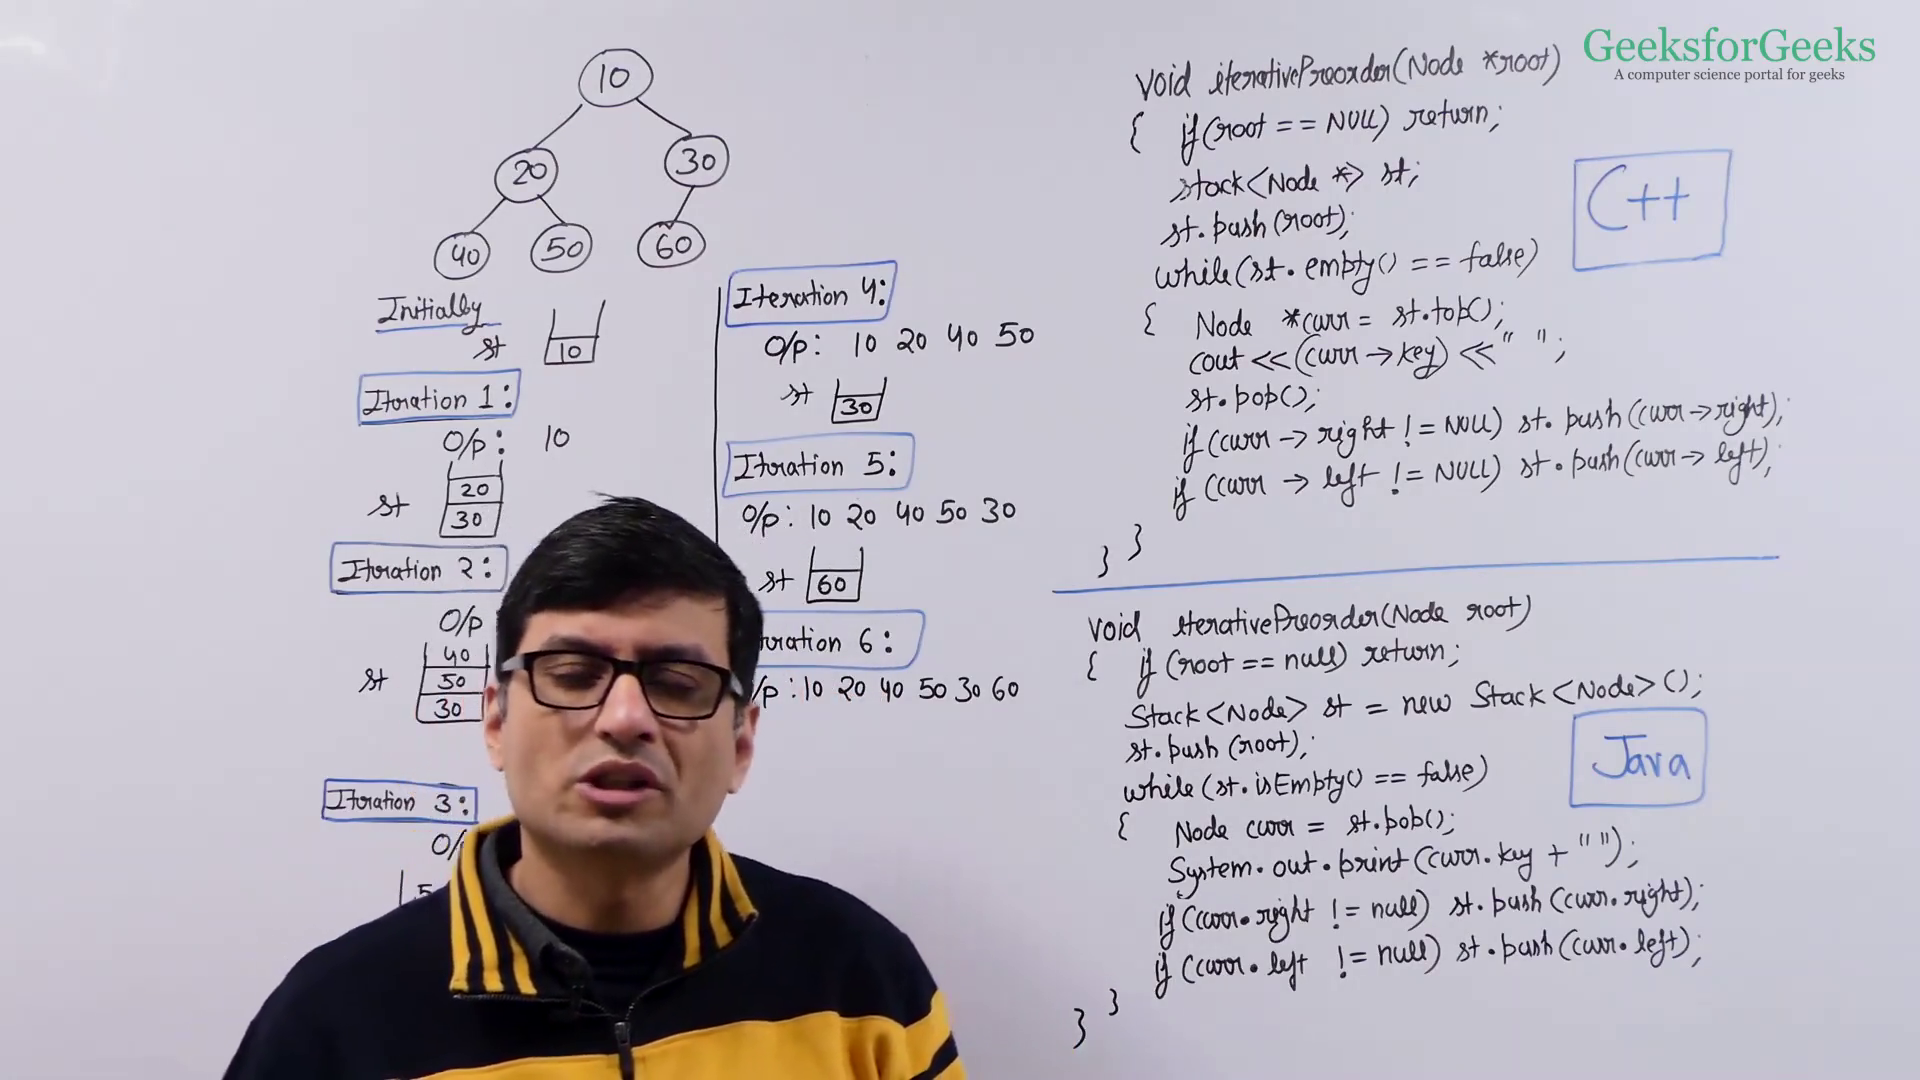 GeeksforGeeks
A computer science portal for geeks
10
20
30
40
50
60
Initially
st
10
Iteration 1:
O/p: 10
20
st
30
Iteration 2:
O/p
40
st
50
30
Iteration 3:
O/
5
Iteration 4:
O/p: 10 20 40 50
st
30
Iteration 5:
O/p: 10 20 40 50 30
st
60
6:
/p: 10 20 40 50 30 60
void iterativePreorder(Node *root)
{ if(root == NULL) return;
stack<Node *> st;
st.push(root);
while(st.empty() == false)
{ Node *curr = st.top();
cout << (curr->key) << " ";
st.pop();
if(curr -> right != NULL) st.push(curr->right);
if(curr -> left != NULL) st.push(curr-> left);
} }
C++
void iterativePreorder(Node root)
{ if(root == null) return;
Stack<Node> st = new Stack<Node>();
st.push(root);
while(st.isEmpty() == false)
{ Node curr = st.pop();
System.out.print(curr.key + " ");
if(curr.right != null) st.push(curr.right);
if(curr.left != null) st.push(curr.left);
} }
Java